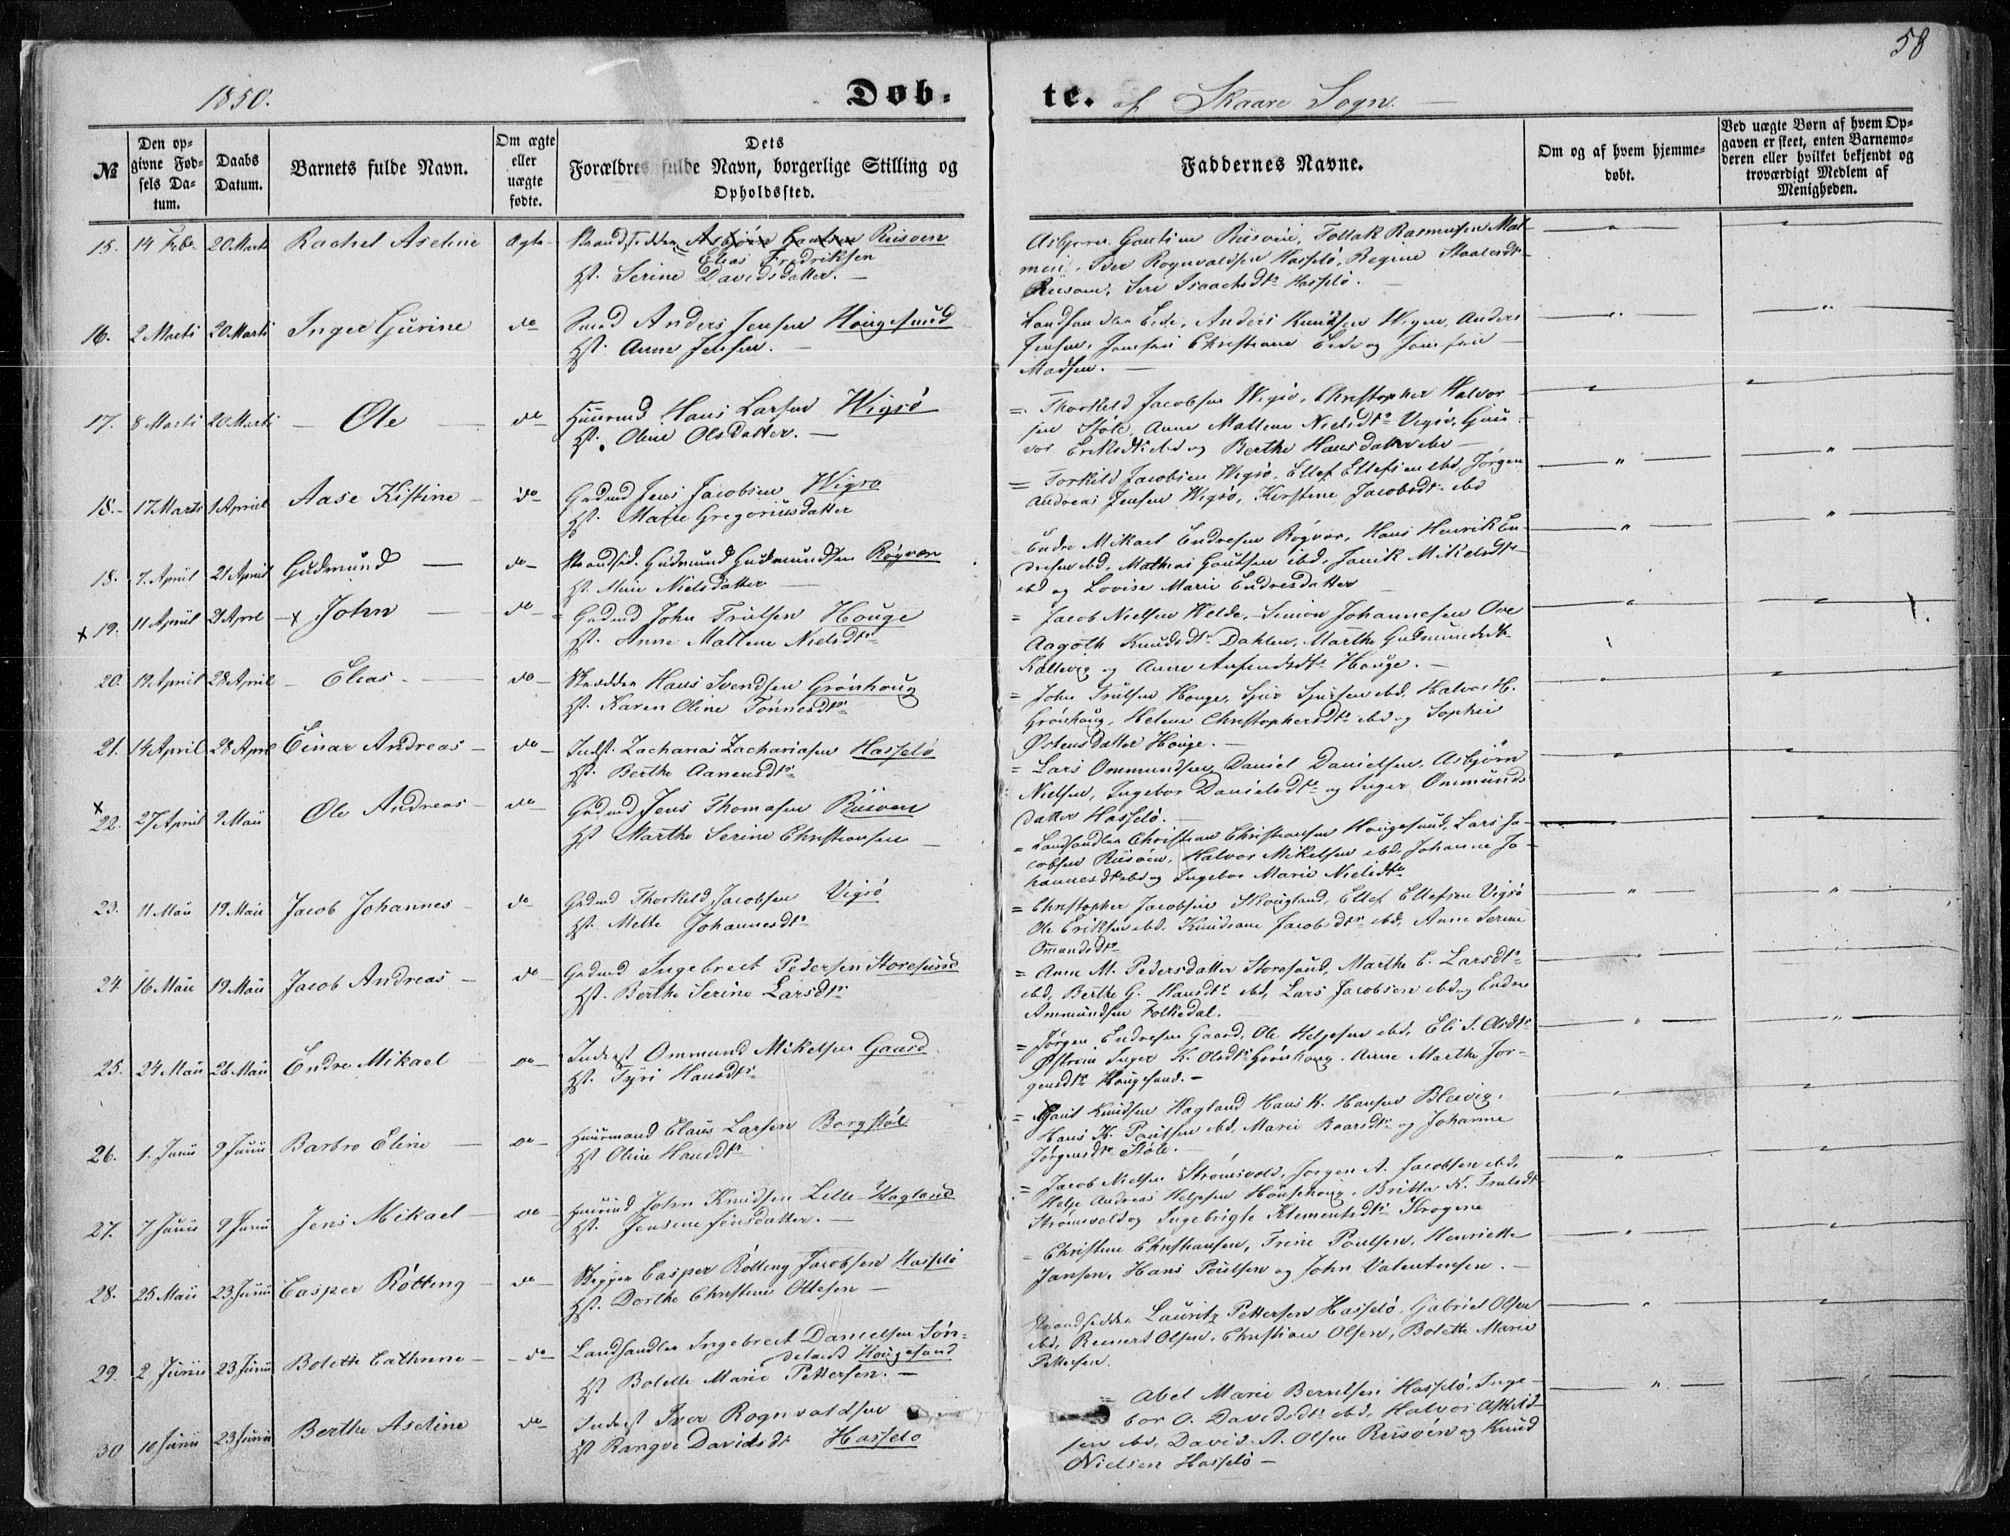 58
1850.
Døb-
te. af Skaare Sogn.
№
Den op-
givne Fød-
sels Da-
tum.
Daabs
Datum.
Barnets fulde Navn.
Om ægte
eller
uægte
fødte.
Dets
Forældres fulde Navn, borgerlige Stilling og
Opholdssted.
Faddernes Navne.
Om og af hvem hjemme-
døbt.
Ved uægte Børn af hvem Op-
gaven er skeet, enten Barnemo-
deren eller hvilket bekjendt og
troværdigt Medlem af
Menigheden.
15. 14 Febr. 20 Marts Rachel Aseline Ægte Strandsidder Asbjørn Gautsen Risøen
Elias Fredriksen
Hst. Serine Davidsdatter.
Asbjørn Gautsen Risøen, Tollak Rasmussen
Iver Rognvaldsen Hasselø, Regine
Risøen, Siri Isaachsdtr Hasselø.
16. 2 Marts 20 Marts Inger Gurine do Smed Anders Jensen Hougesund
Hst. Anne Jensen.
Landhandler Eide, Anders Knudsen Wigen, Anders
Jensen, Jomfru Christiane Eide og Jomfru
Madsen.
17. 8 Marts 20 Marts Ole do Huusmd Hans Larsen Wigsø
Hst. Oline Olsdatter.
Thorkild Jacobsen Wigsø, Christopher Halvor-
sen Støle, Anne Mallene Nielsdtr Vigsø, Gun-
vor Eriksdtr ibd og Berthe Hansdatter ibd
18. 17 Marts 1 April Aase Kistine do Gaardmd Jens Jacobsen Wigsø
Hst. Marie Gregoriusdatter
Torkild Jacobsen Wigsø, Ellef Ellefsen ibd, Jørgen
Andreas Jensen Wigsø, Kirstine Jacobsdtr ibd
18. 7 April 21 April Gudmund do Strandsid. Gudmund Gudmundsen Røgvær
Hst. Mine Nielsdatter
Endre Mikael Endresen Røgvær, Hans Henrik En-
dresen ibd, Mathias Gautsen ibd, Janik Mikelsdtr
ibd og Lovise Marie Endresdatter
x 19. 11 April 21 Aprl x John do Gaardmd John Trulsen Houge
Hst. Anne Mallene Nielsdtr
Jacob Nielsen Welde, Simon Johannesen Ove
Aagoth Knudsdtr Dahlen, Marthe Gudmundsdtr
Kallevig og Anne Hauge.
20. 19 April 28 April Elias do Skrædder Hans Svendsen Grønhoug
Hst. Karen Oline Tønnesdtr
John Trulsen Houge, ibd, Halvor H.
Grønhaug, Helene Christophersdtr ibd og Sophie
Østensdatter Houge.
21. 14 April 28 Aprl Einar Andreas do Indst. Zacharias Zachariasen Hasselø
Hst. Berthe Aanensdtr
Lars Ommundsen, Daniel Danielsen, Asbjørn
Nielsen, Ingebor Danielsdtr og Inger Ommunds
datter Hasselø.
x
22. 27 April 9 Maii Ole Andreas do Gaardmd Jens Thomasen Risøen
Hst Marthe Serine Christiansen
Landhandler Christian Christiansen Hougesund, Lars Ja-
cobsen Risøen, Halvor Mikelsen ibd, Johanne Jo-
hannesdtr ibd og Ingebor Marie Nielsdtr
23. 11 Maii 19 Maii Jacob Johannes do Gaardmd Thorkild Jacobsen Vigsø
Hst. Mette Johannesdtr
Christopher Jacobsen Skougland, Ellef Ellefsen Vigsø
Ole Eriksen ibd, Knudsane Jacobsdtr ibd, Anne Serine
Omundsdtr
24 16 Maii 19 Maii Jacob Andreas do Gaardmd Ingebreth Pedersen Storesund
Hst. Berthe Serine Larsdtr
Anne M. Pedersdatter Storesund, Marthe E. Larsdtr
ibd, Berthe G. Hansdtr ibd, Lars Jacobsen ibd og Endre
Ammundsen Folkedal.
25. 24 Maii 26 Maii Endre Mikael do Inderst Ommund Mikelsen Gaard
Hst. Tyri Hansdtr
Jørgen Endresen Gaard, Ole Helgesen ibd, Eli S. Olsdtr
Østrem Inger K. Olsdtr Grønhoug, Anne Marthe Jør-
gensdtr Hougesund.
26. 1. Junii 9 Junii Barbro Eline do Huusmand Claus Larsen Borgstøl
Hst Oline Hansdtr
Gaut Knudsen Hagland Hans K. Hansen Bleivig,
Hans K. Poulsen ibd, Marie Roarsdtr og Johanne
Jørgensdtr Støle.
27. 7 Junii 9 Junii Jens Mikael do Huusmd John Knudsen Lille Hagland
Hst. Jensene Jensdatter.
Jacob Nielsen Strømsvold, Jørgen A. Jacobsen ibd,
Helje Andreas Helgesen Hougehoug, Britta K. Trulsdtr
Strømsvold og Ingebrigte Klementsdtr Krogene
28. 25 Maii 23 Junii Casper Rötting do Skipper Casper Rötting Jacobsen Hasselø
Hst. Dorthe Christine Ottesen
Christine Christiansen, Trine Poulsen, Henriette
Jansen, Hans Poulsen og John Valentinsen.
29. 2 Junii 23 Junii Bolette Cathrine do Landhandler Ingebreth Danielsen Søn-
Hougesund
Hst Bolette Marie Pettersen.
Strandsidder Lauritz Pettersen Hasselø, Gabriel Olsen
ibd, Reinert Olsen, Christian Olsen, Bolette Marie
Pettersen.
30 10 Junii 23 Junii Berthe Aseline do Inderst Iver Rognvaldsen
Hst Rangve Davidsdtr Hasselø
Abel Marie Berntsen Hasselø, Inge-
bor O. Davidsdtr ibd, Halvor Askild-
sen ibd, David A. Olsen Risøen og Knud
Nielsen Hasselø